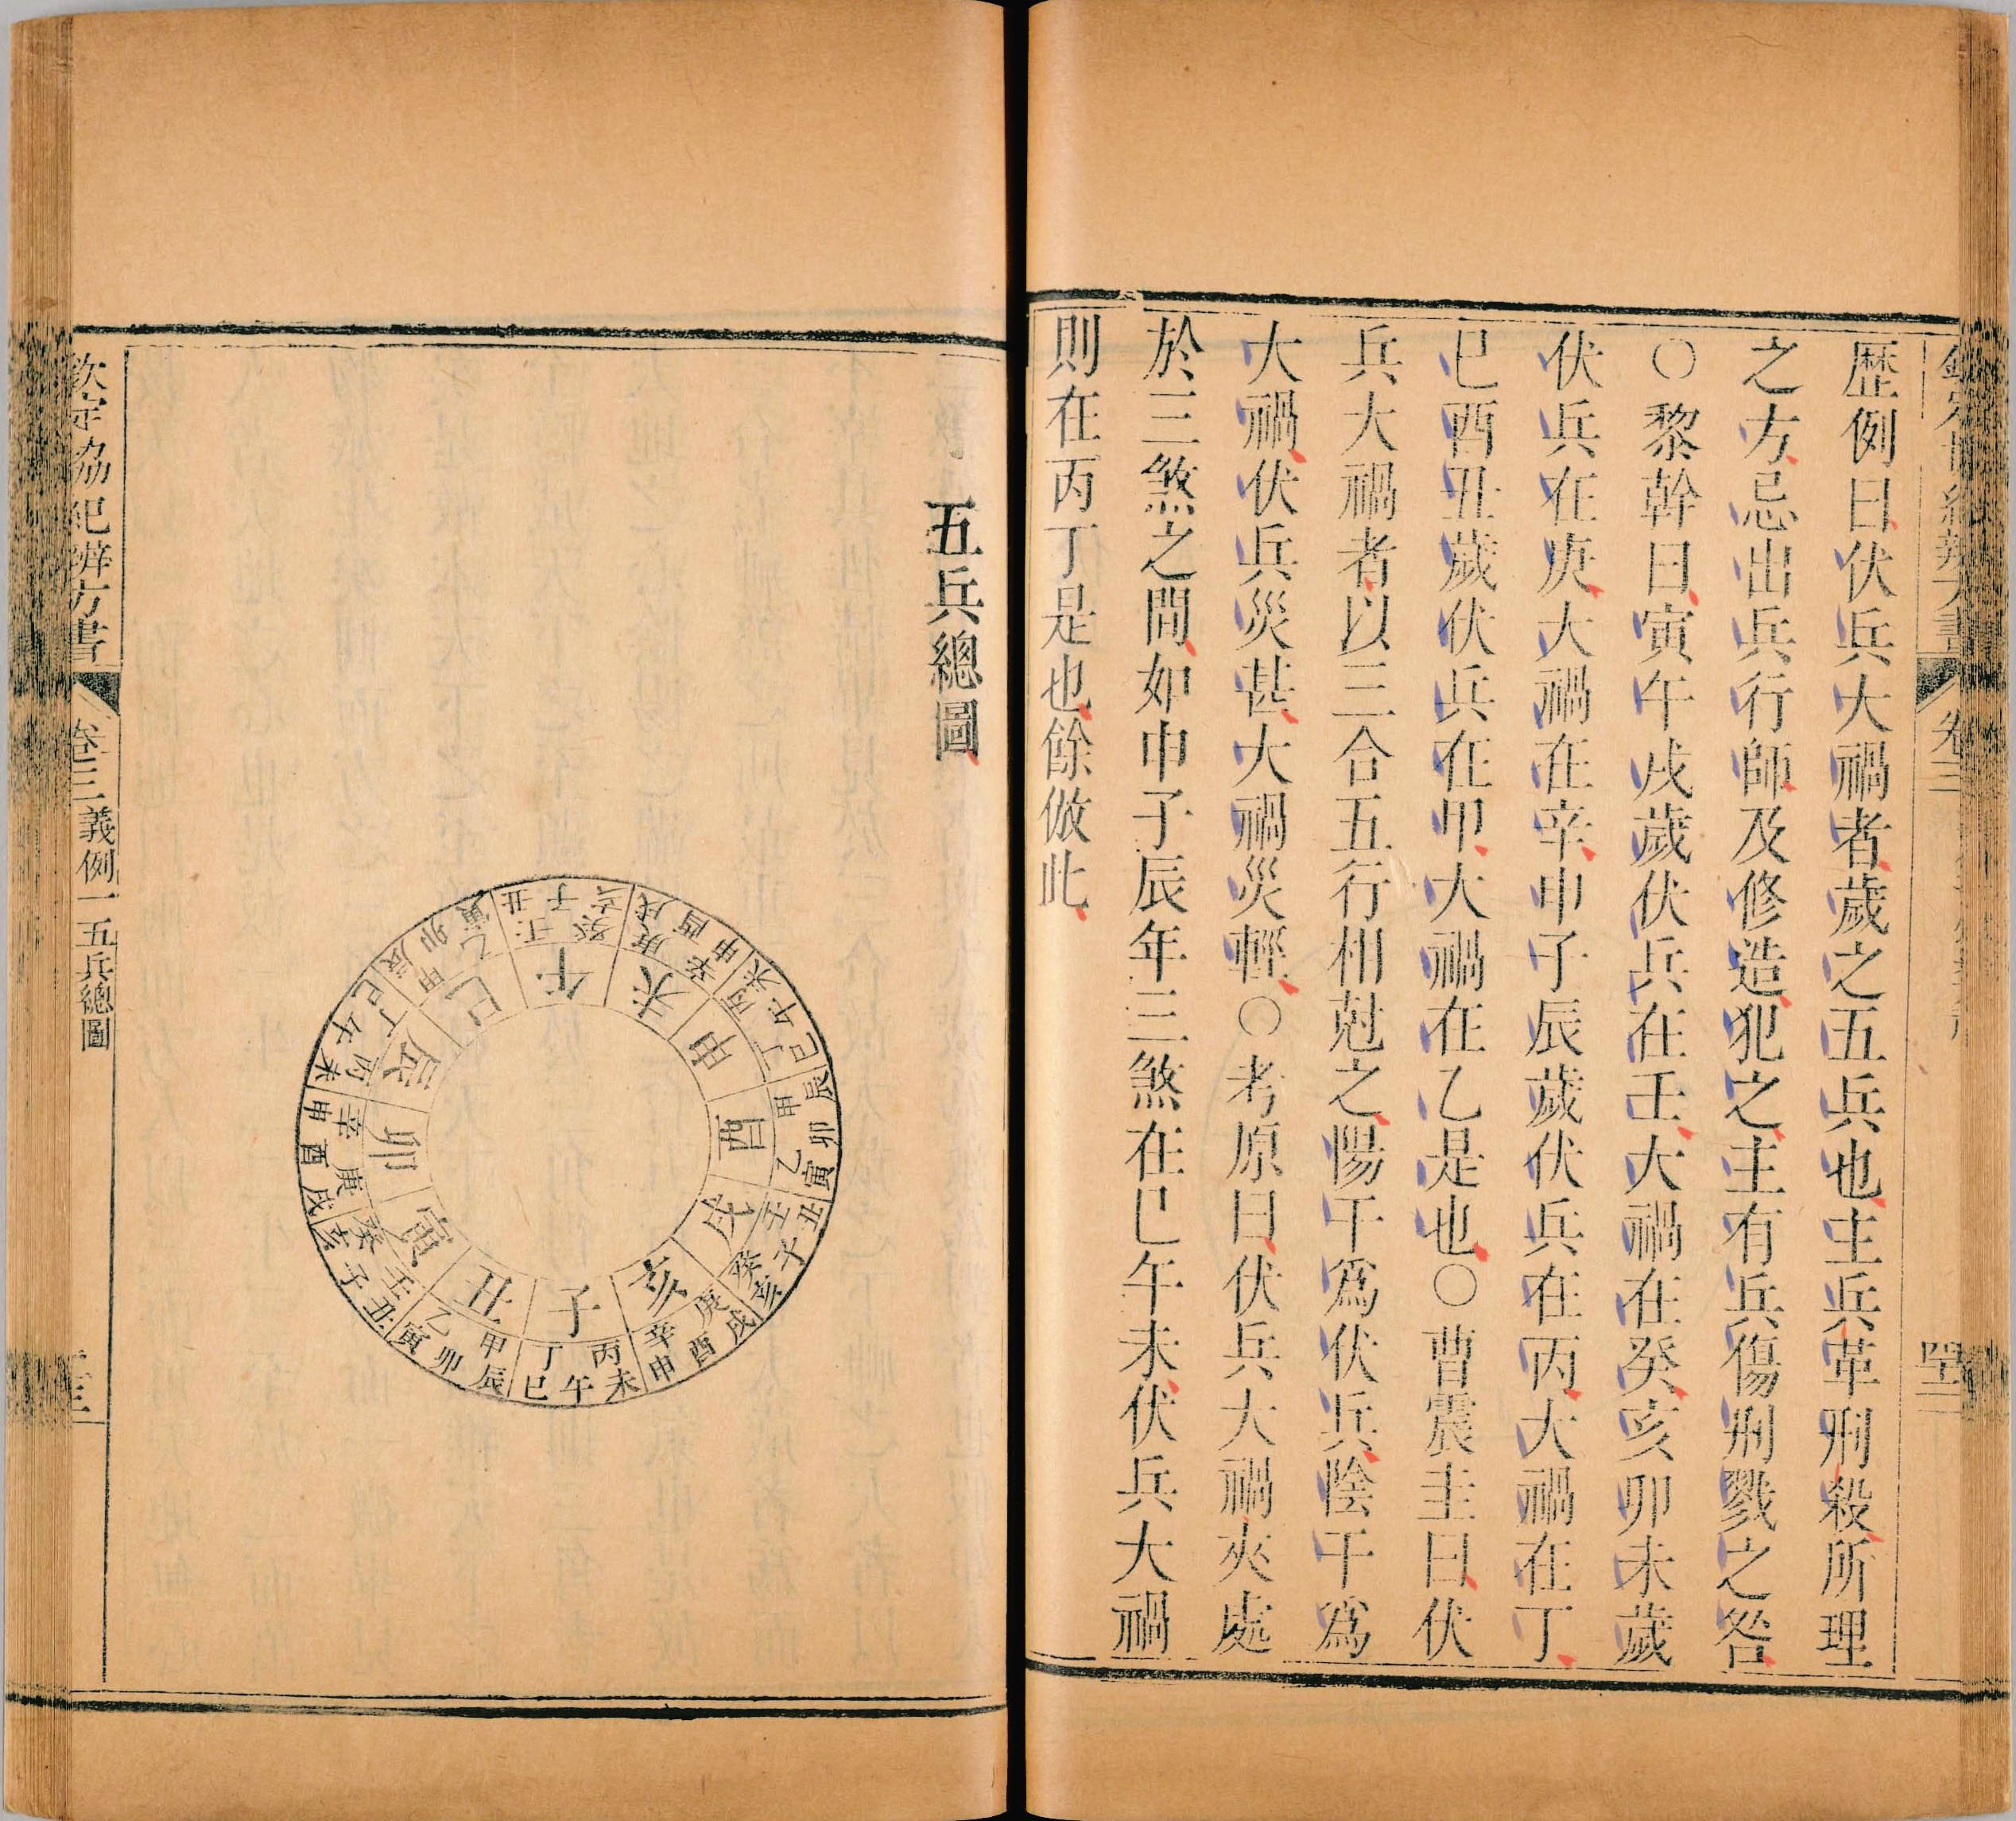 歷例曰伏兵大禍者歲之五兵也主兵革刑殺所理
之方忌出兵行師及修造犯之主有兵傷刑戮之咎
○黎幹曰寅午戌歲伏兵在壬大禍在癸亥卯未歲
伏兵在庚大禍在辛申子辰歲伏兵在丙大禍在丁
巳酉丑歲伏兵在甲大禍在乙是也○曹震圭曰伏
兵大禍者以三合五行相尅之陽干爲伏兵陰干爲
大禍伏兵災甚大禍災輕○考原曰伏兵大禍夾處
於三煞之間如申子辰年三煞在巳午未伏兵大禍
則在丙丁是也餘倣此
五兵總圖
午
壬癸
丑子亥
未
庚辛
戌酉申
申
丙丁
未午巳
酉
甲乙
辰卯寅
戌
壬癸
丑子亥
亥
庚辛
戌酉申
子
丙丁
未午巳
丑
甲乙
辰卯寅
寅
壬癸
丑子亥
卯
庚辛
戌酉申
辰
丙丁
未午巳
巳
甲乙
辰卯寅
欽定協紀辨方書
卷三義例一五兵總圖